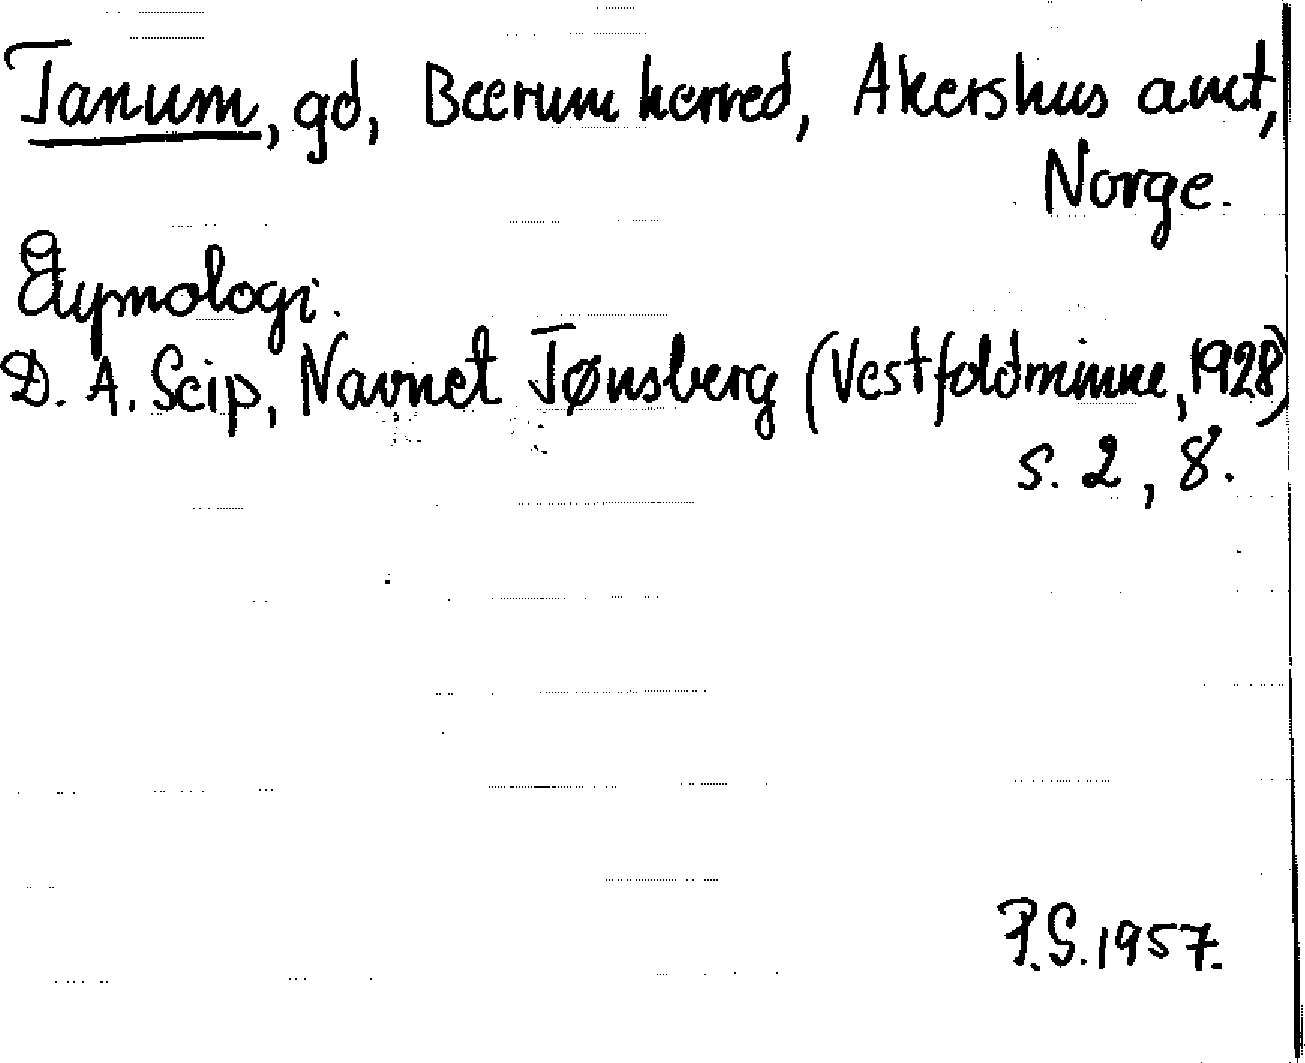 Tanum, gd, Bærum herred, Akershus amt,
Norge.
Etymologi.
D. A. Seip, Navnet Tønsberg (Vestfoldminne, 1928)
s. 2, 8.
P.S. 1957.